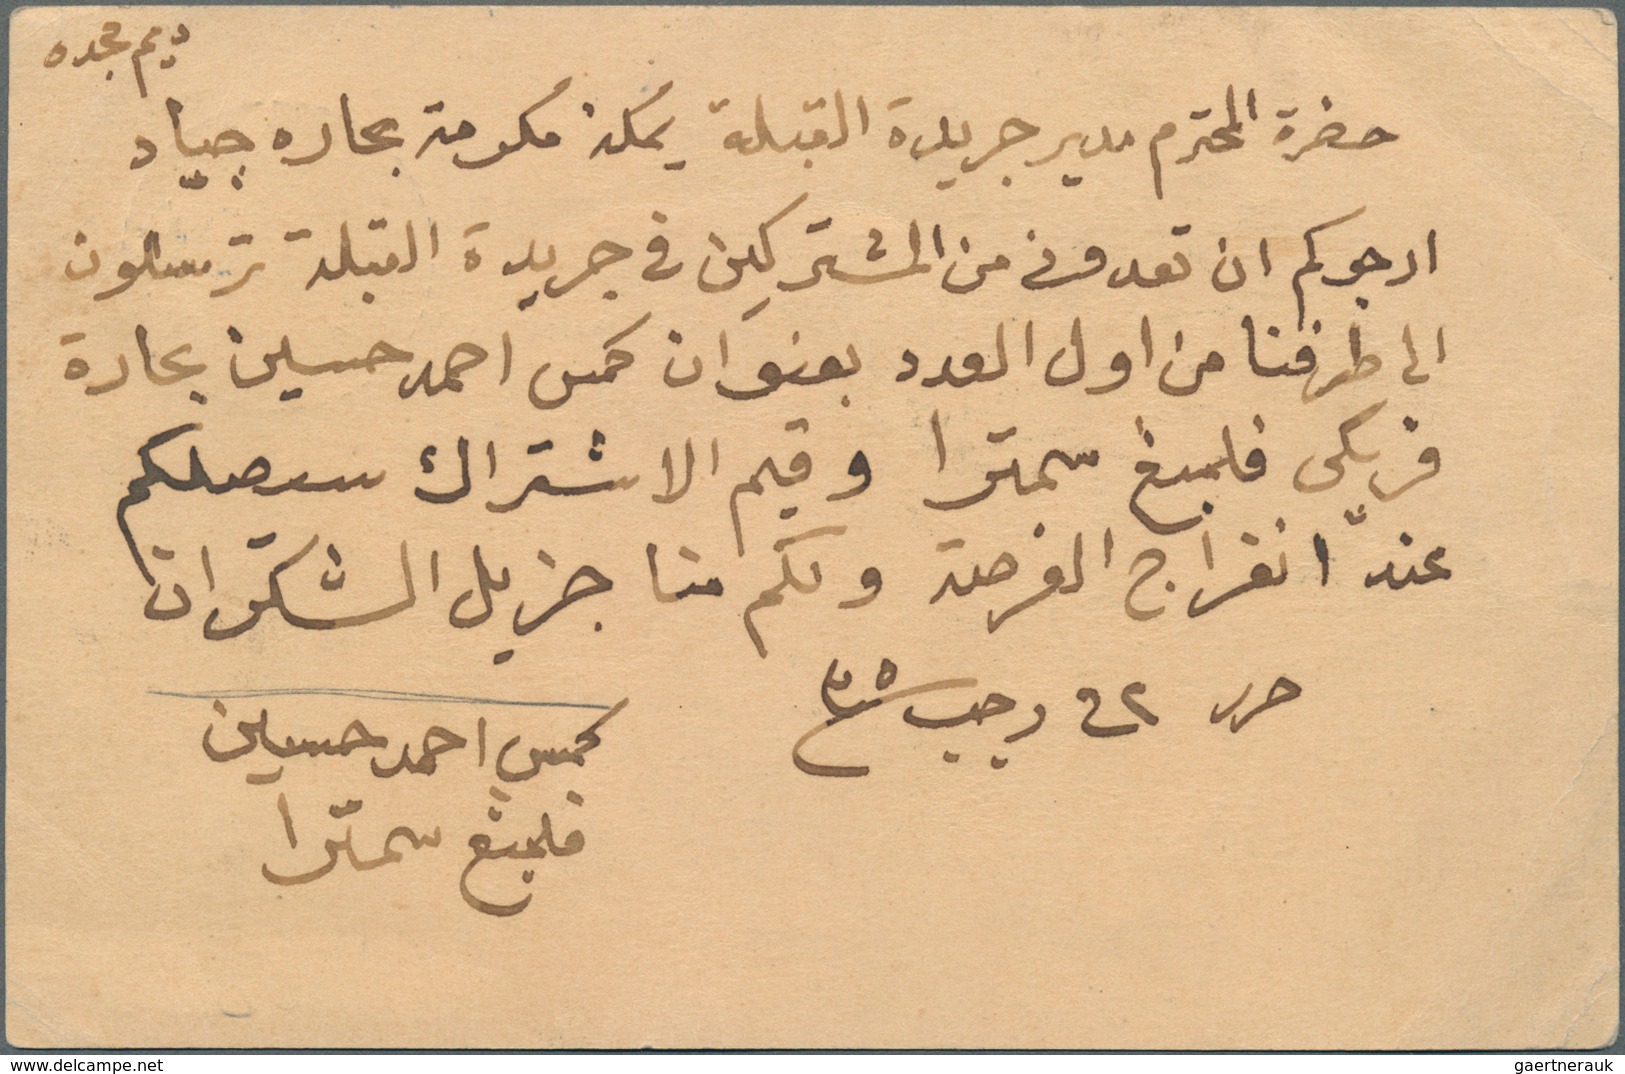 حضرة المحترم مدير جريدة القبلة بمكة مكرمة بحاره جياد
ارجوكم ان تعدوني من المشتركين في جريدة القبلة ترسلون
الى طرفنا من اول العدد بعنوان كمس احمد حسين بحارة
فريكى فلمبغ سمترا وقيم الاشتراك سيصلكم
عند انفراج الفرصة ولكم منا جزيل الشكران
حرر ٢٩ رجب سنة ٣٥
كمس احمد حسين
فلمبغ سمترا
www.delcampe.net
gaertnerauk